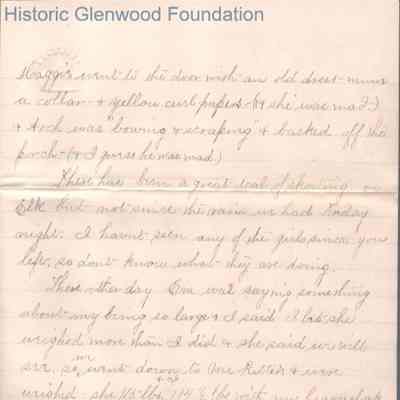 Historic Glenwood Foundation
Maggie went to the door with an old dress minus
a collar & yellow curl papers (& she was mad)
& Arch was "bowing & scraping" & backed off the
porch (& I guess he was mad.)
There has been a great deal of skating on
Elk but not since the rain we had Friday
night. I havnt seen any of the girls since you
left, so dont know what they are doing.
The other day Eva was saying something
about my being so large & I said I bet she
weighed more than I did & she said we will
see. so we went down to Mr & were
weighed. she 115 lbs. & me 114½ lbs with my